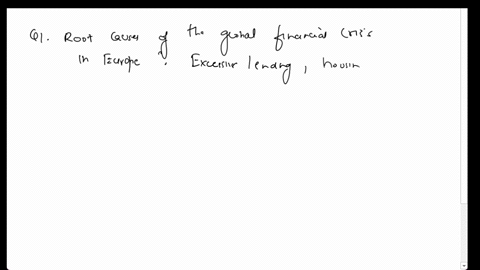 Q1. Root causes of the global financial crisis
in Europe : Excessive lending, housin